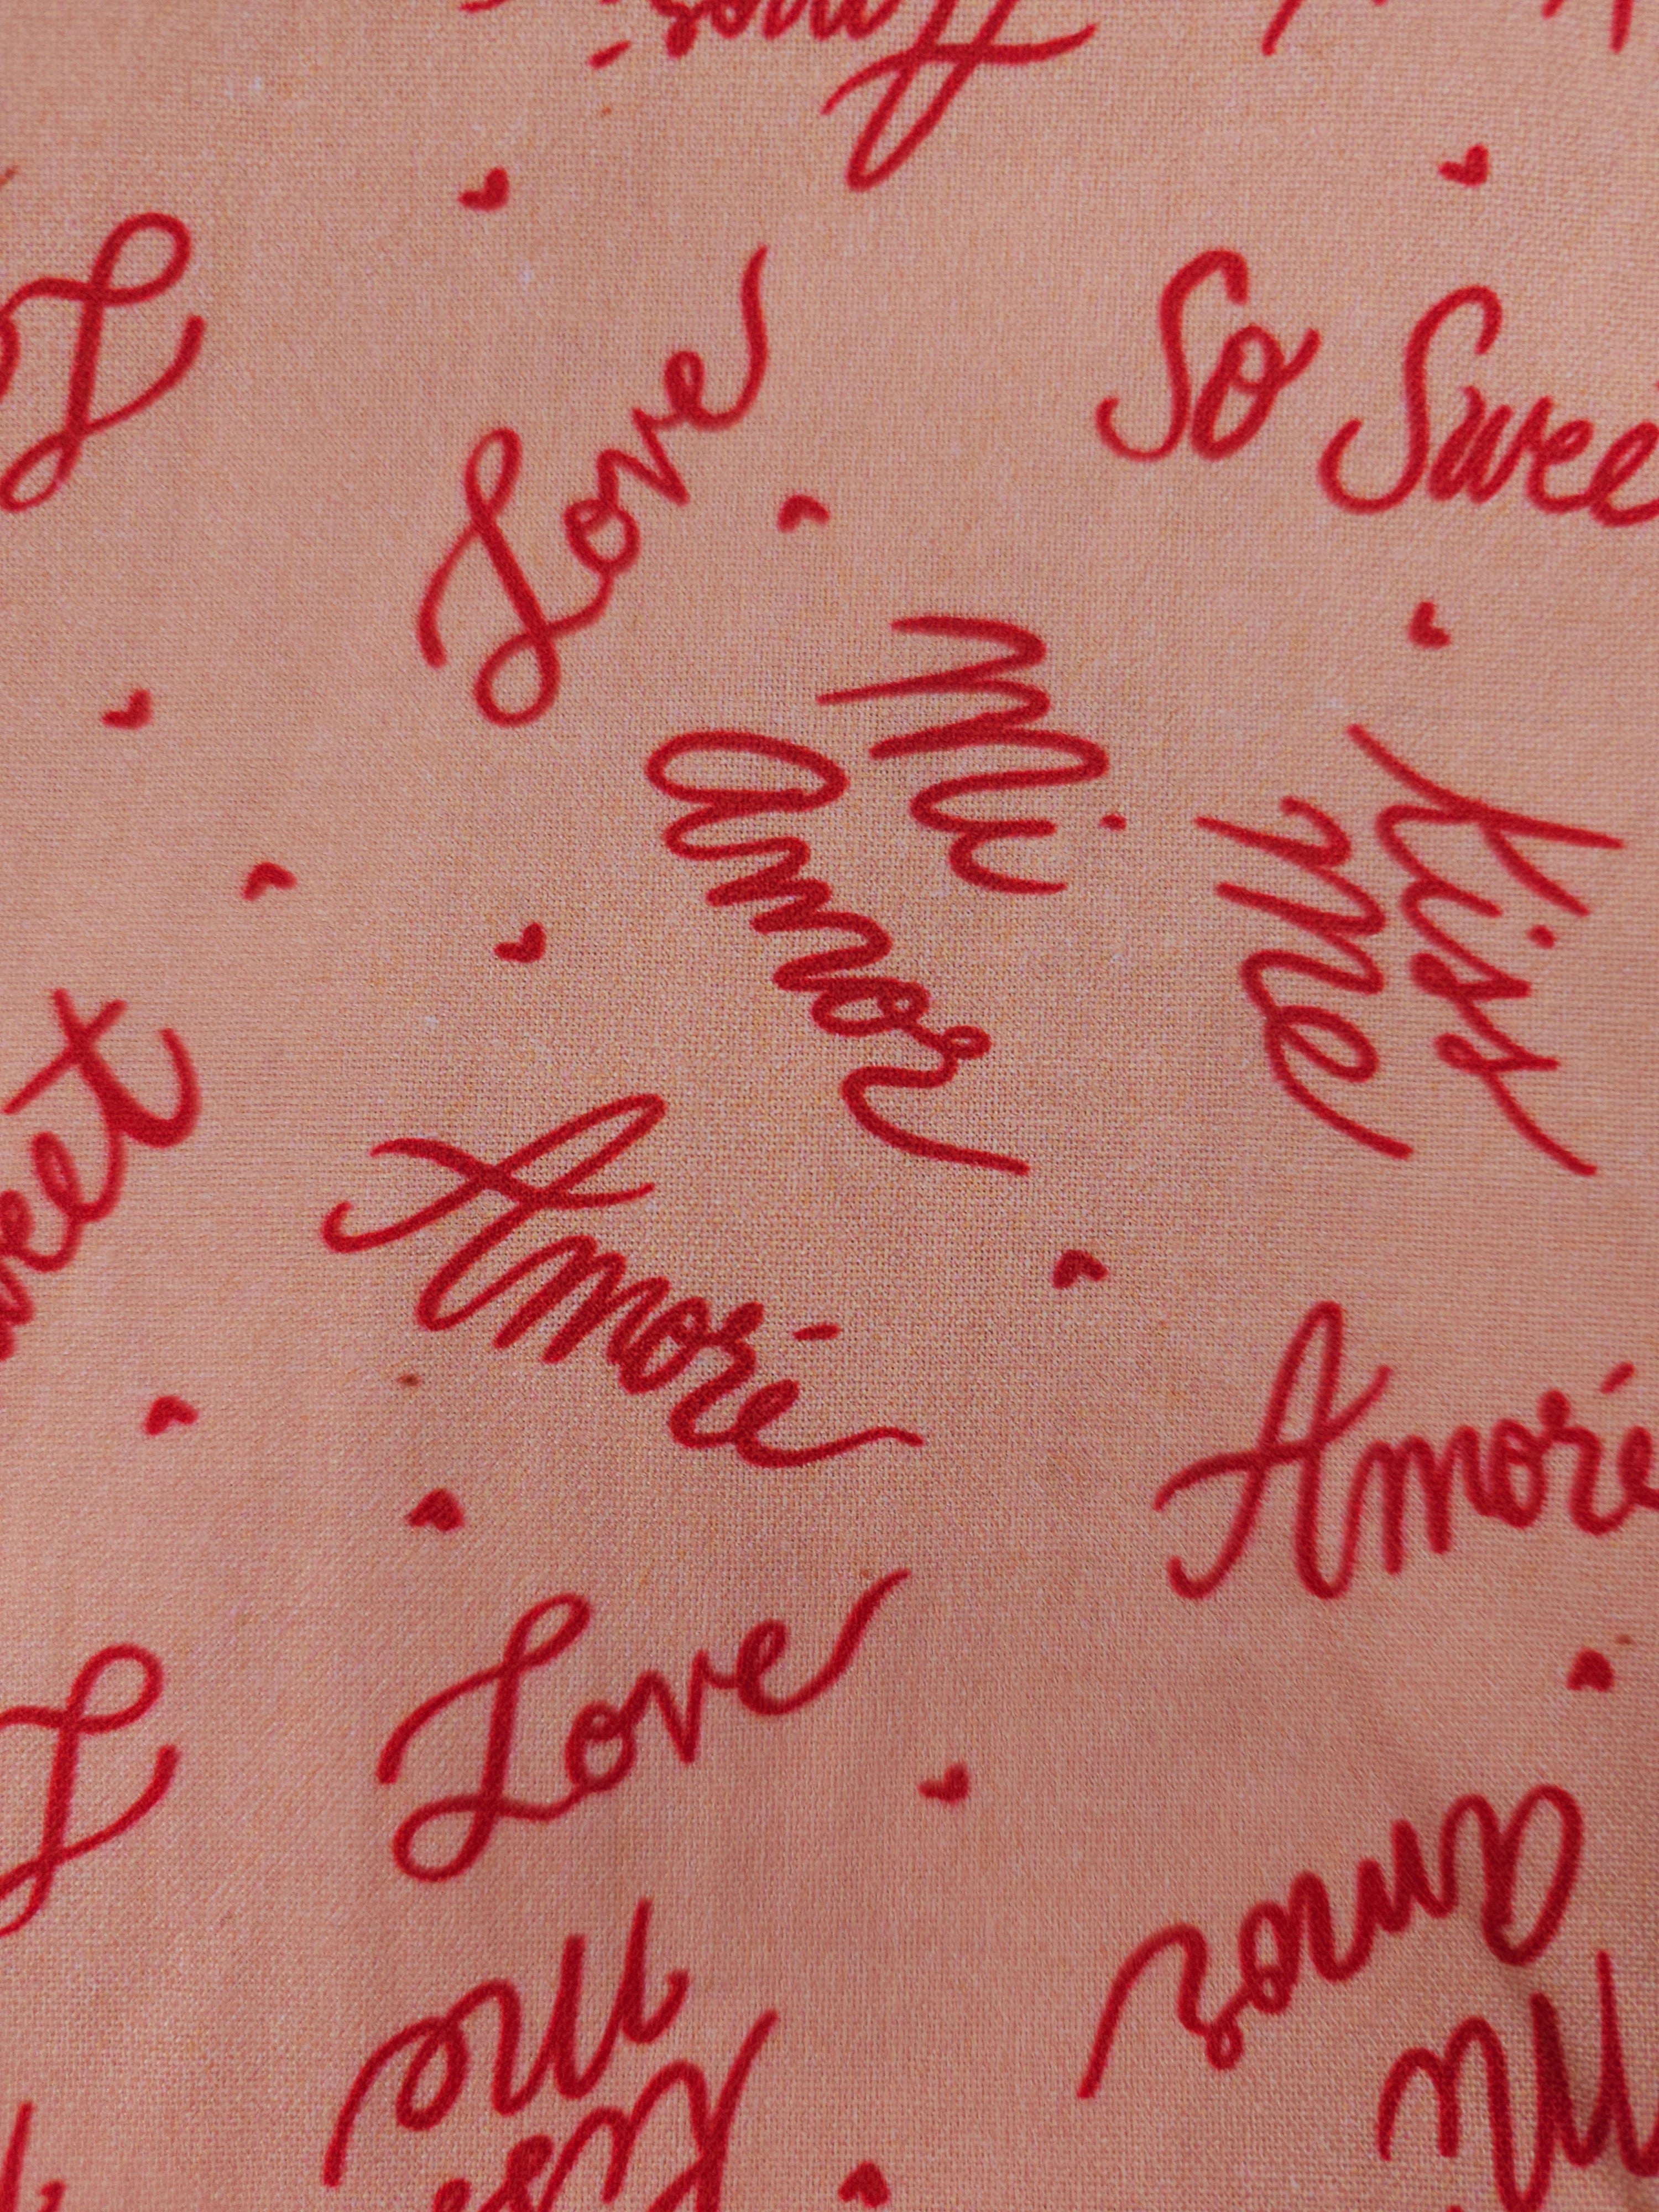 Amoré
L
Love
So Swee
Mi
amor
Kiss
me
weet
Amoré
Amoré
Love
L
Mi
amor
Kiss
me